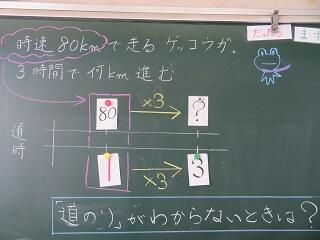 時速80kmで走るゲッコウガ。
3時間で何km進む
80 ×3 ?
道
時
1 ×3 3
「道の」がわからないときは?